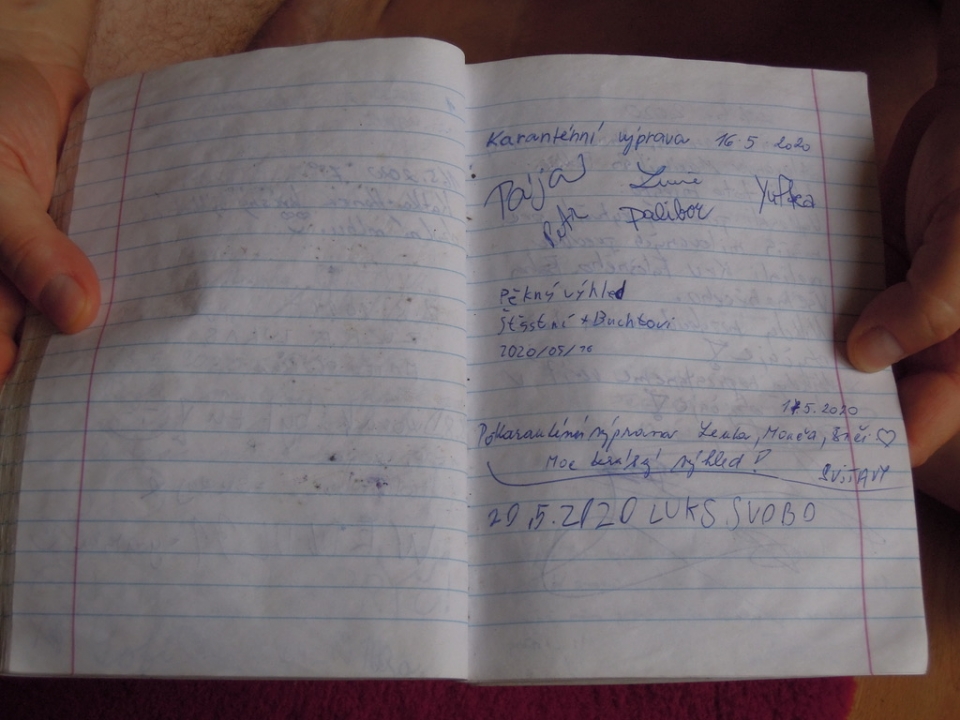 Karanténní výprava 16 5 2020
Pája Lucie Yufka
Petr Dalibor
Pěkný výhled
Šťastní + Buchtovi
2020/05/16
17 5. 2020
Pokaranténní výprava Lenka, Monča,
Moc krásný výhled! SVITAVY
20.5.2020 LUKS SVOBO